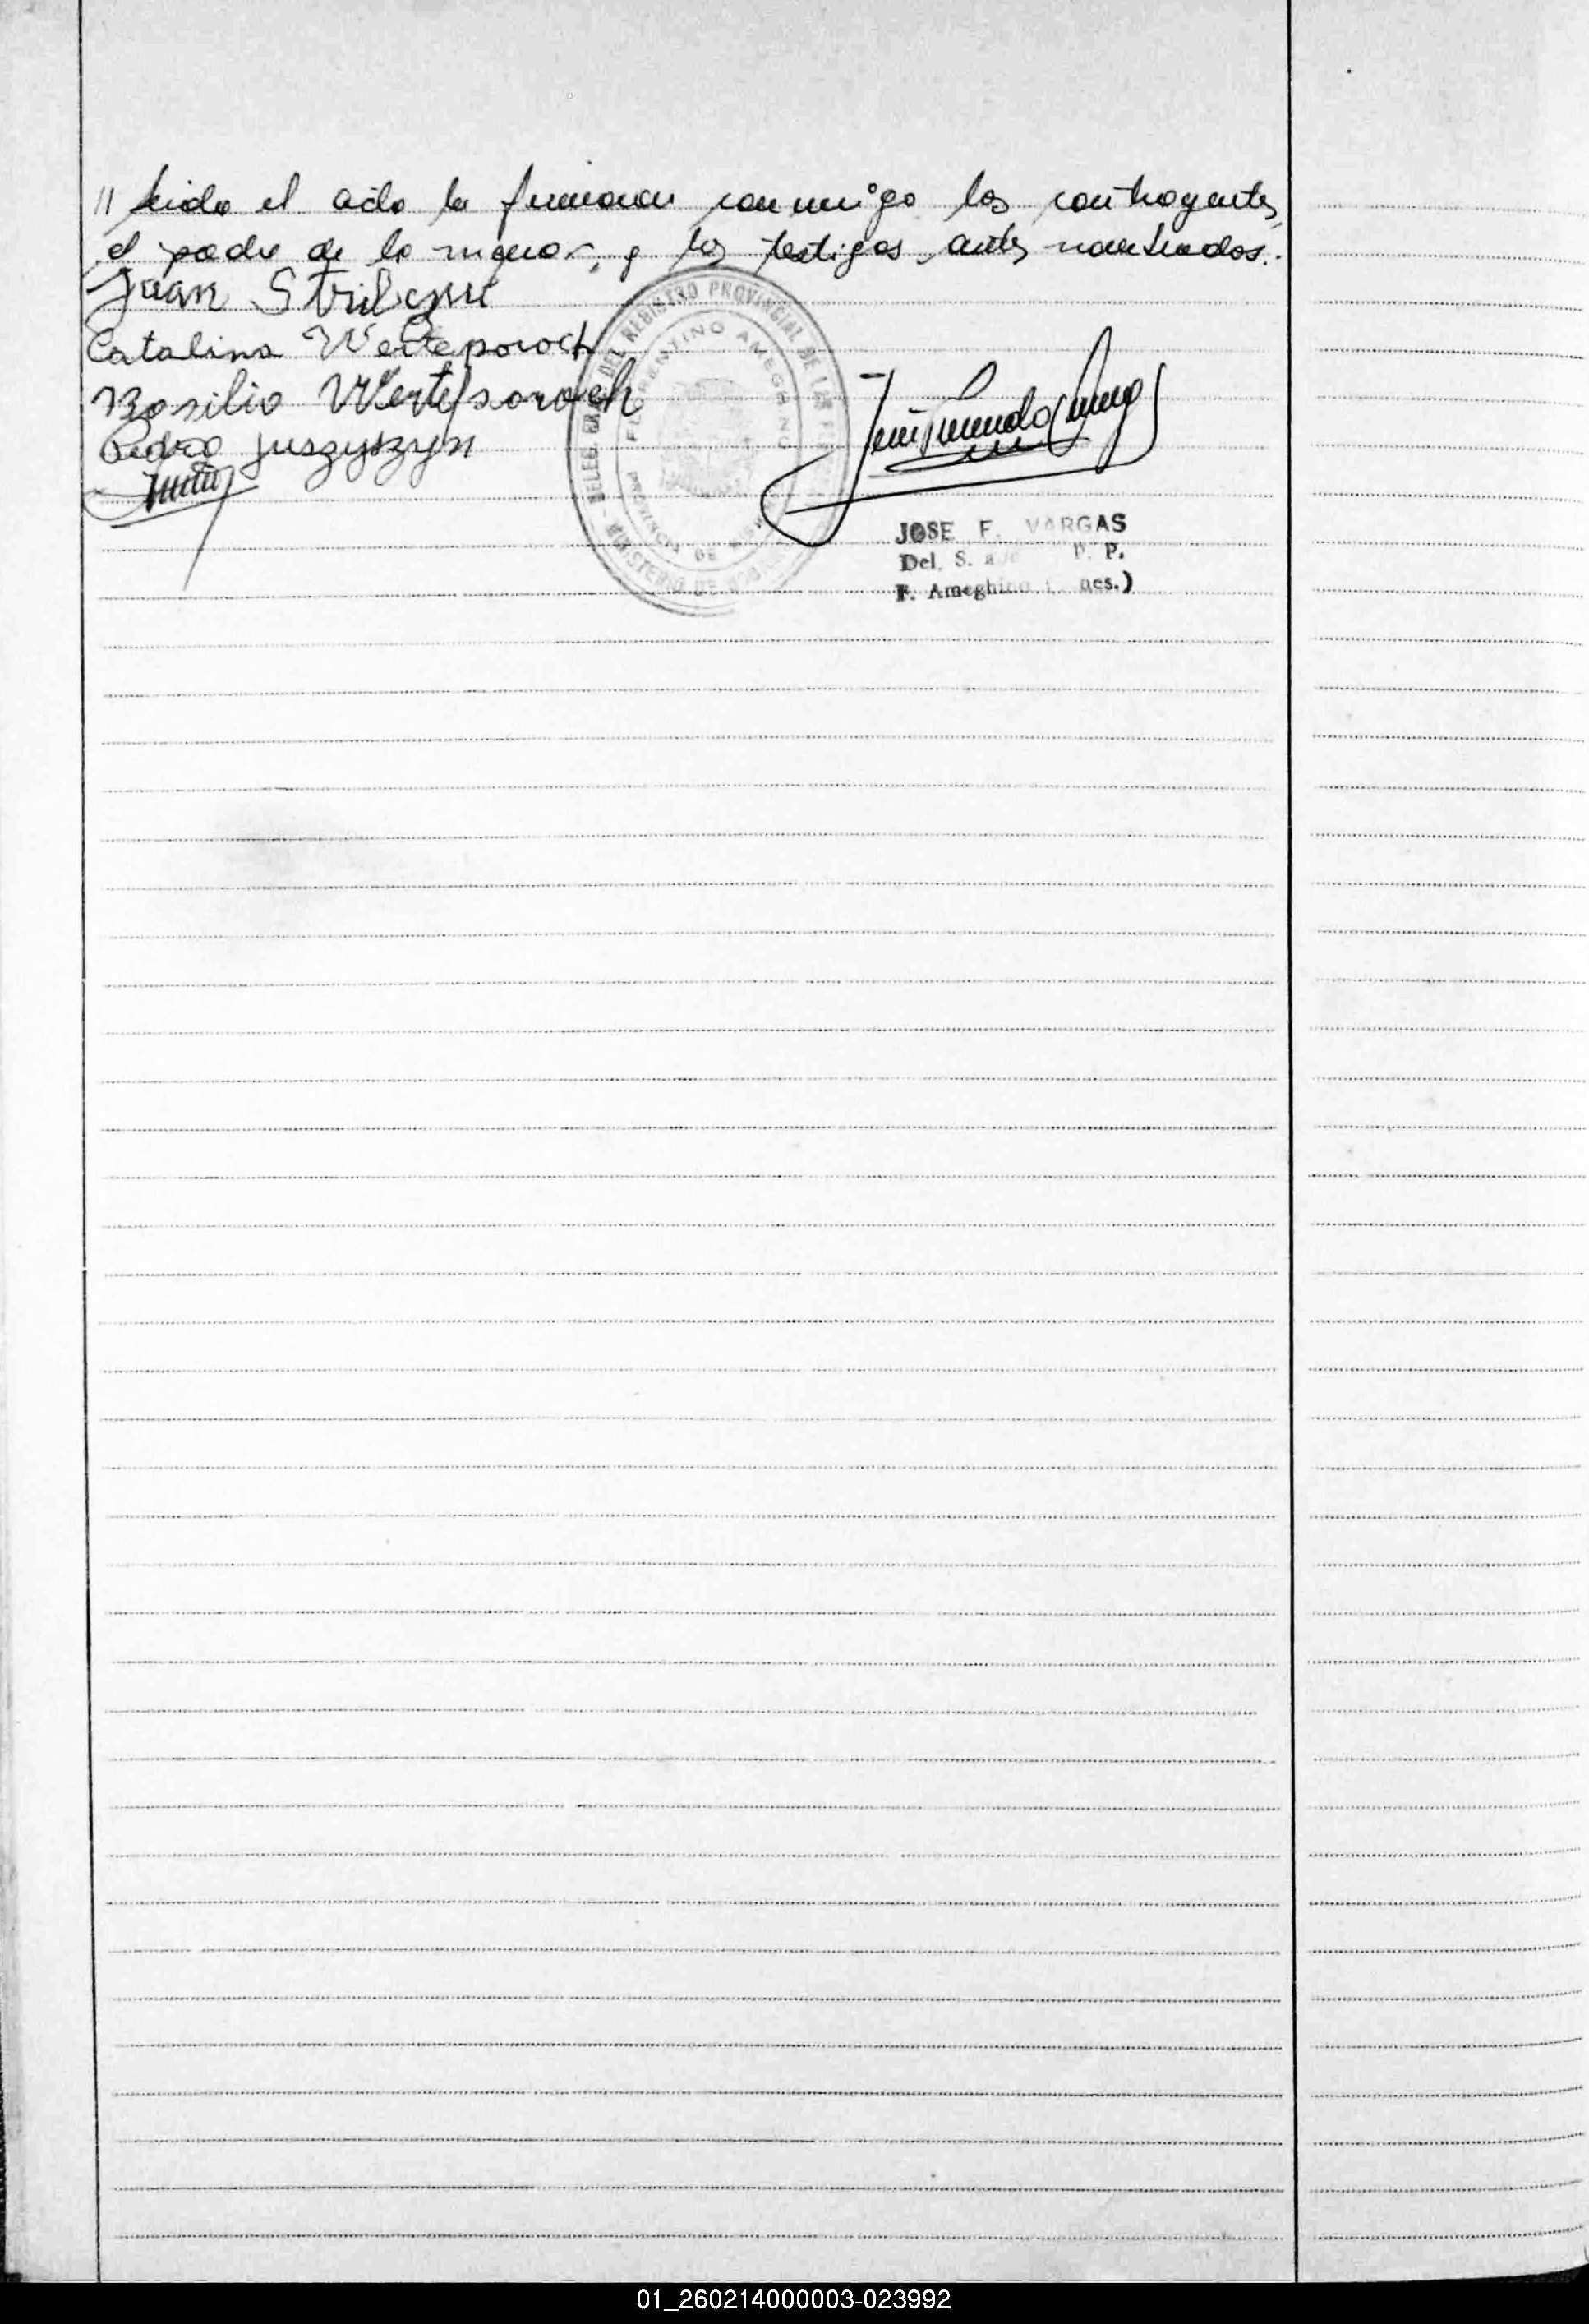 // leido el acto la firmaron conmigo los contrayentes,
el padre de la menor, y los testigos antes nombrados.
Juan Strilczuk
Catalina Werteporoch
Basilio Werteporoch
Pedro Juszyszyn
DELEG. GRAL. DEL REGISTRO PROVINCIAL DE LAS
FLORENTINO AMEGHINO
PROVINCIA DE
MINISTERIO DE
JOSE F. VARGAS
Del. S. P. P.
F. Ameghino
01_260214000003-023992